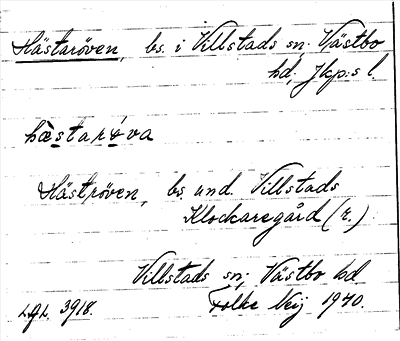 Hästaröven, bs. i Villstads sn; Västbo
hd, Jkp:s l.
hæstarɵva
Häströven, bs und. Villstads
Klockaregård (r.)
Villstads sn; Västbo hd.
L.g.L. 3918. Folke Neij 1940.